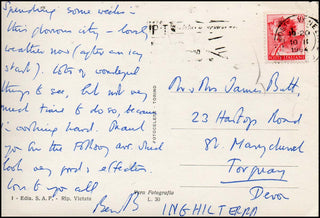 Spending some weeks in
this glorious city - lovely
weather now (after an icy
start). Lots of wonderful
things to see, but not very
much time to do so, because
I'm working hard. Thank
you for the
look very good & effective.
Love to you all
Ben
Mr & Mrs James Butt,
23 Hartop Road
St. Marychurch
Torquay
Devon
INGHILTERRA
Vera Fotografia
L. 30
1 - Ediz. S.A.F. - Rip. Vietata
POSTE ITALIANE